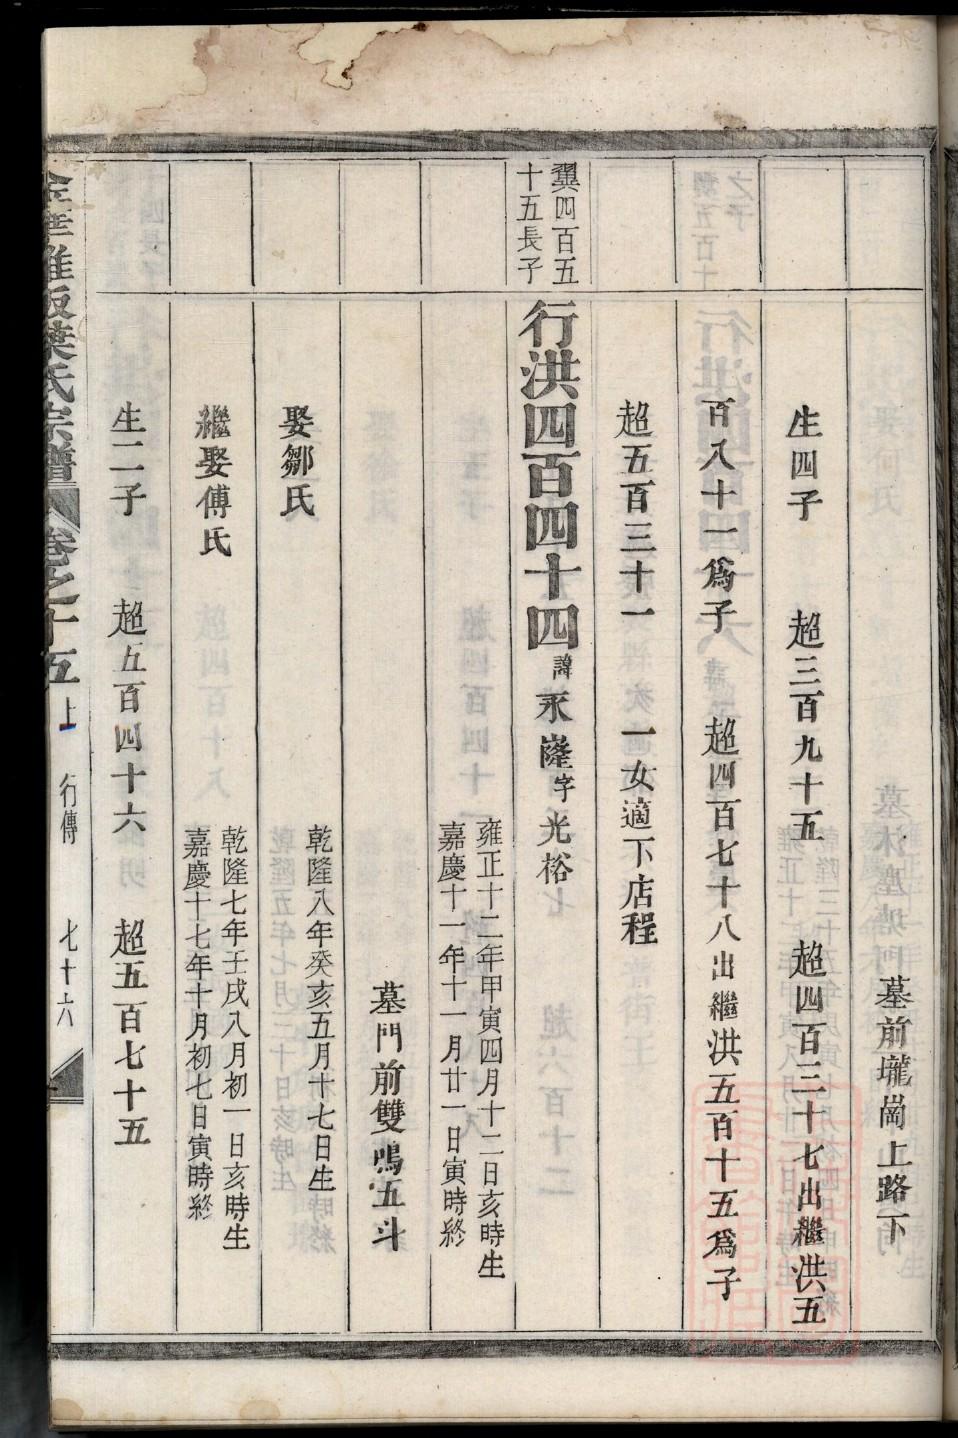 墓前壠崗上路下
生四子 超三百九十五 超四百三十七出繼洪五
百八十一爲子 超四百七十八出繼洪五百十五爲子
超五百三十一 一女適下店程
翼四百五
十五長子
行洪四百四十四諱永嶐字光裕
雍正十二年甲寅四月十二日亥時生
嘉慶十一年十一月廿一日寅時終
墓門前雙鳴五斗
娶鄒氏 乾隆八年癸亥五月十七日生
繼娶傅氏 乾隆七年壬戌八月初一日亥時生
嘉慶十七年十月初七日寅時終
生二子 超五百四十六 超五百七十五
金華雅畈葉氏宗譜 卷之十五上 行傳 七十六